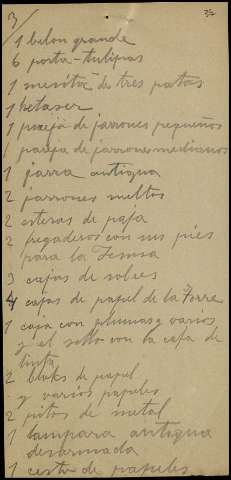 3/
1 belon grande
6 porta-tulipas
1 mesita de tres patas
1 ketaser
1 pareja de jarrones pequeños
1 pareja de jarrones medianos
1 jarra antigua
2 jarrones sueltos
2 esteras de paja
2 fregaderos con sus pies
para la
3 cajas de sobres
4 cajas de papel de la Torre
1 caja con plumas y varios
y el sello con la caja de
tinta
2 bloks de papel
y varios papeles
2 pitos de metal
1 lampara antigua
desarmada
1 cesto de papeles